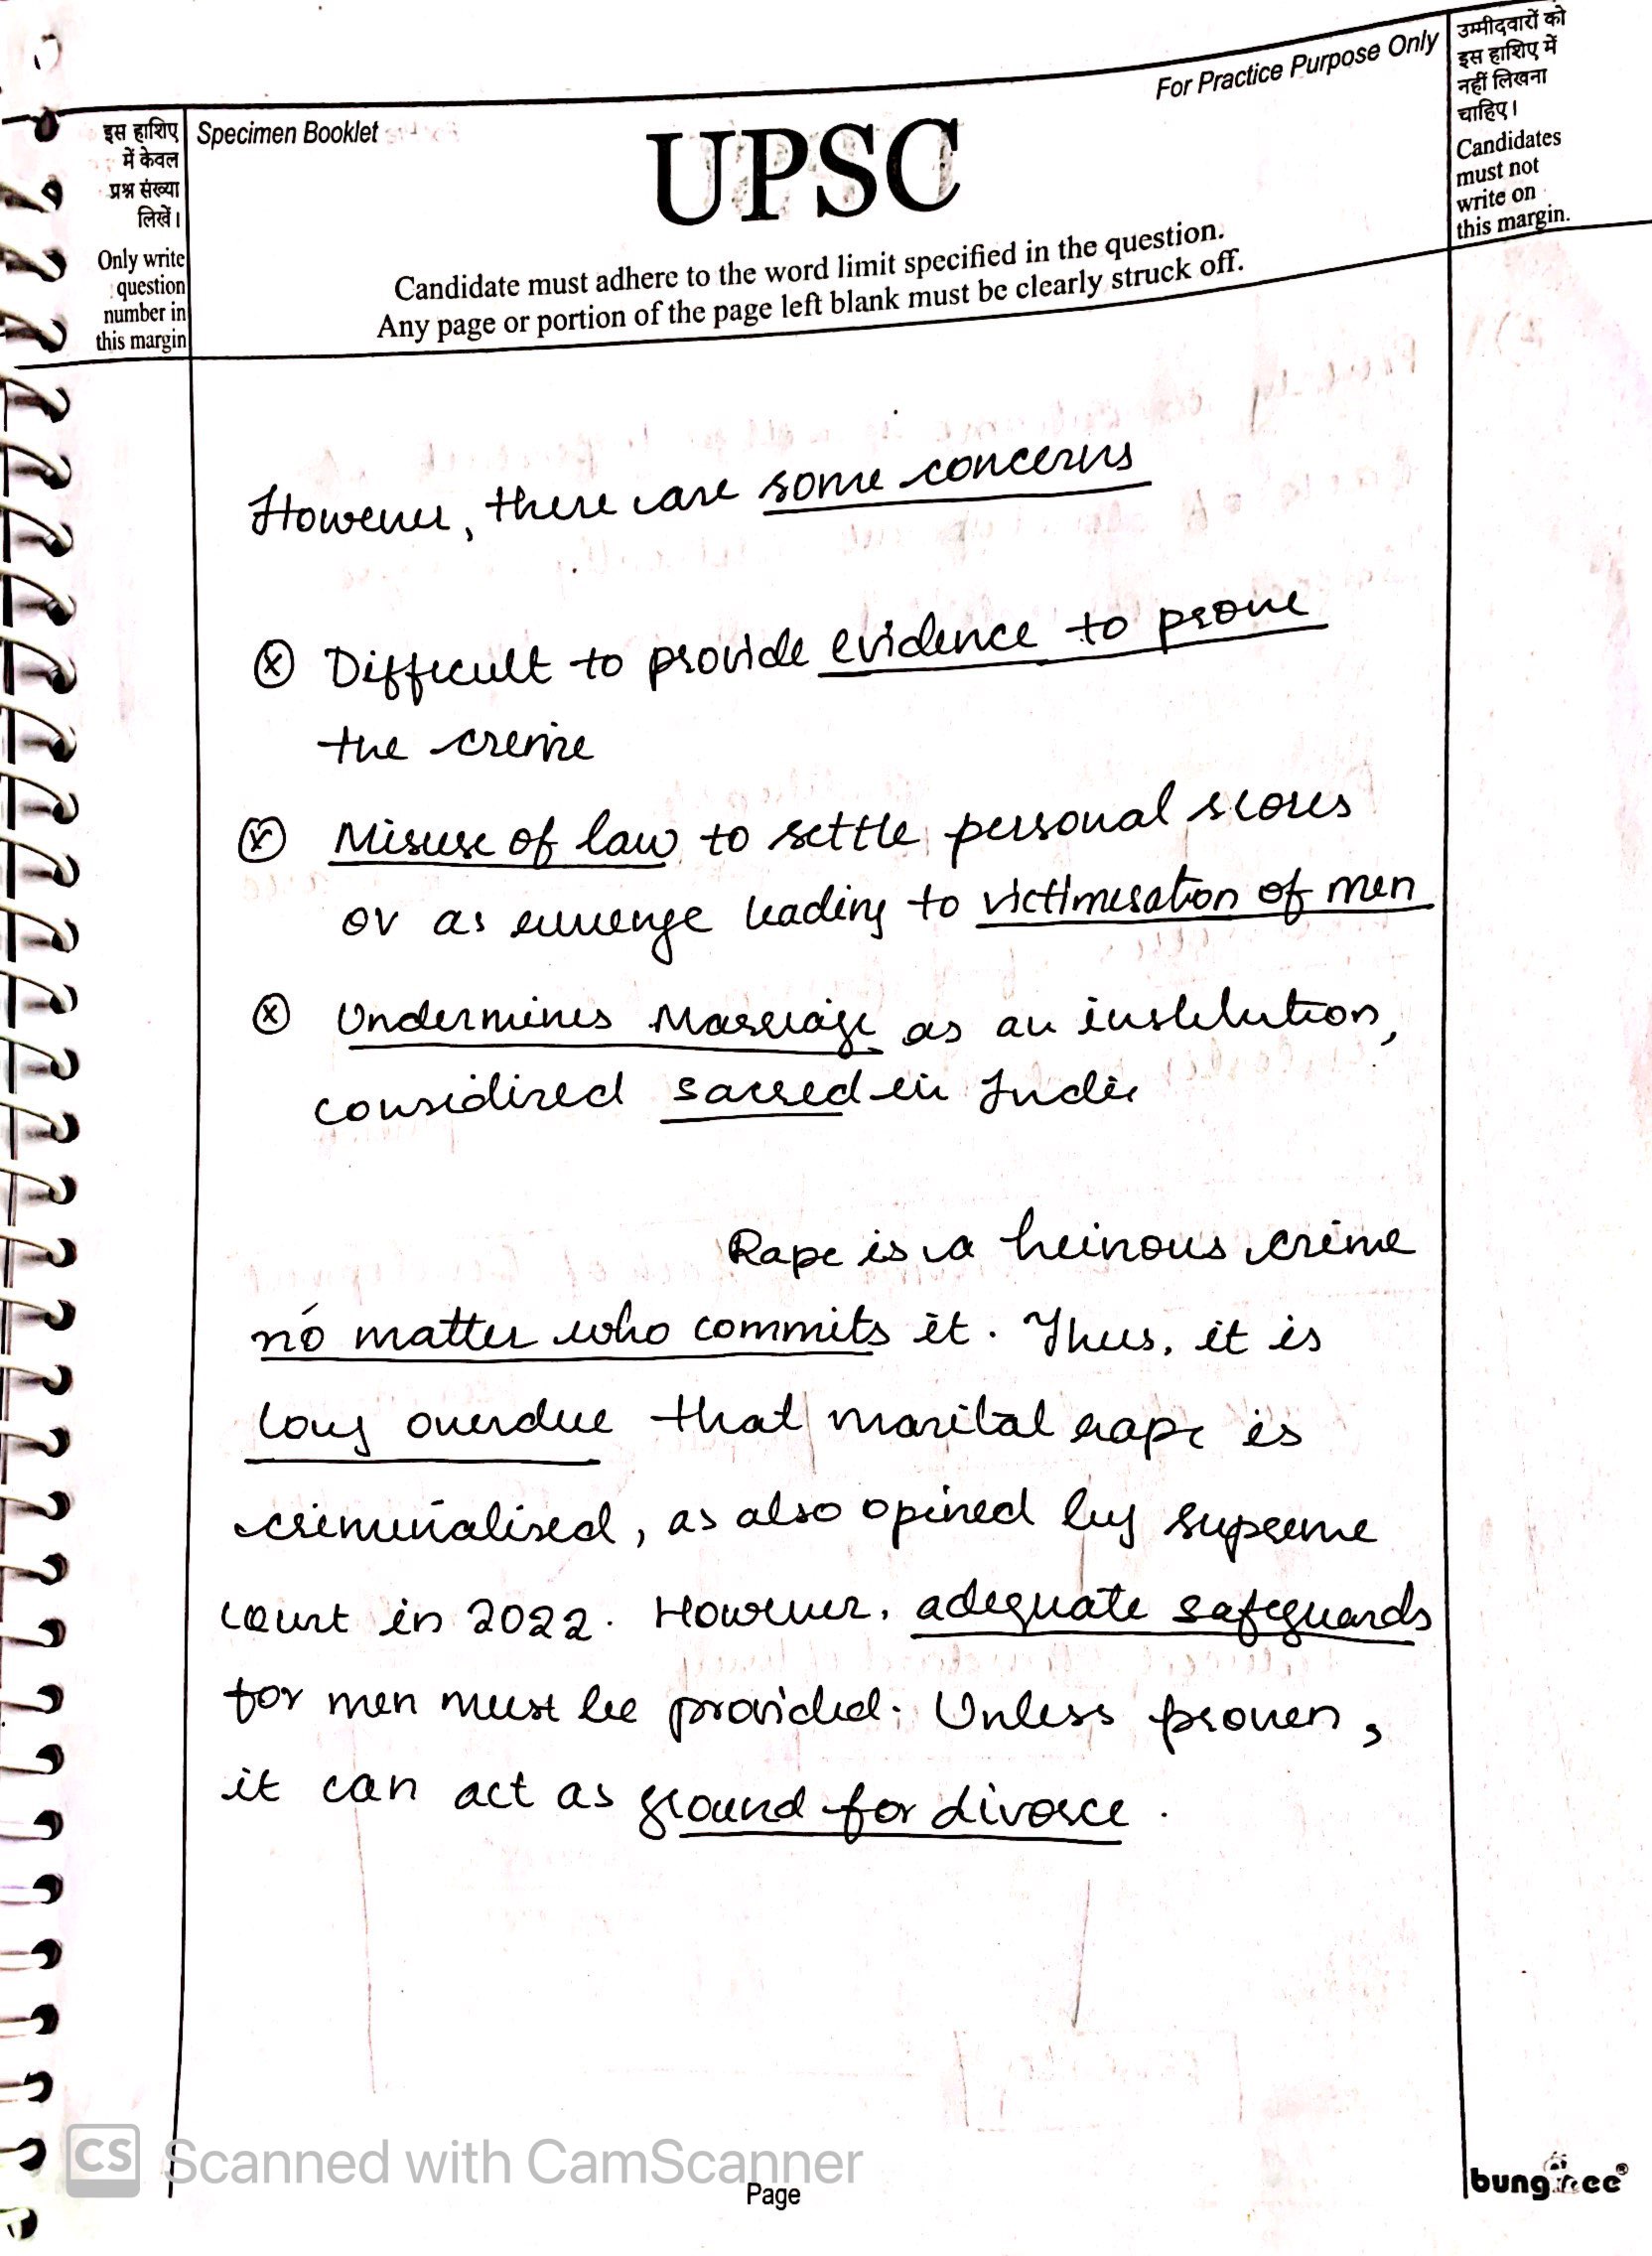 For Practice Purpose Only
उम्मीदवारों को
इस हाशिए में
नहीं लिखना
चाहिए।
Candidates
must not
write on
this margin.
इस हाशिए
में केवल
प्रश्न संख्या
लिखें।
Only write
question
number in
this margin
Specimen Booklet
UPSC
Candidate must adhere to the word limit specified in the question.
Any page or portion of the page left blank must be clearly struck off.
However, there are some concerns
Difficult to provide evidence to prove
the crime
Misuse of law to settle personal scores
or as revenge leading to victimisation of men
Undermines Marriage as an institution,
considered sacred in India
Rape is a heinous crime
no matter who commits it. Thus, it is
long overdue that marital rape is
criminalised, as also opined by supreme
court in 2022. However, adequate safeguards
for men must be provided. Unless proven,
it can act as ground for divorce.
CS Scanned with CamScanner
Page